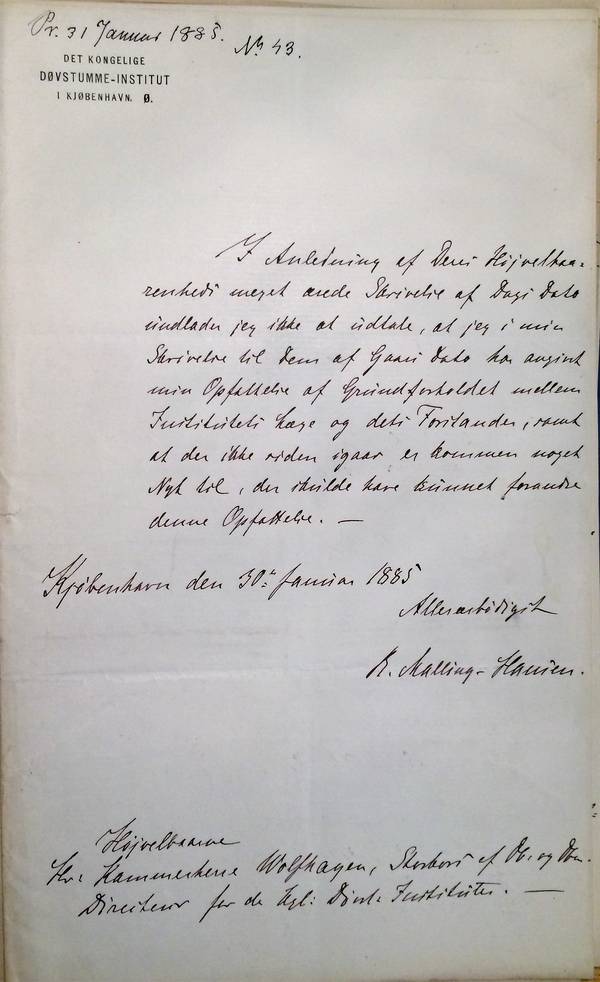 Pr. 31 Januar 1885.
No 43.
DET KONGELIGE
DØVSTUMME-INSTITUT
I KJØBENHAVN. Ø.
I Anledning af Deres Højvelbaa-
renheds meget ærede Skrivelse af Dags Dato
undlader jeg ikke at udtale, at jeg i min
Skrivelse til Dem af Gaars Dato har angivet
min Opfattelse af Grundforholdet mellem
Institutets Læge og dets Forstander, samt
at der ikke siden igaar er kommen noget
Nyt til, der skulde have kunnet forandre
denne Opfattelse. —
Kjøbenhavn den 30te Januar 1885
Allerærbødigst
R. Malling-Hansen.
Højvelbaarne
Hr. Kammerherre Wolfhagen, Storkors af Db. og Dbm.
Directeur for de kgl: Døvst. Instituter. —